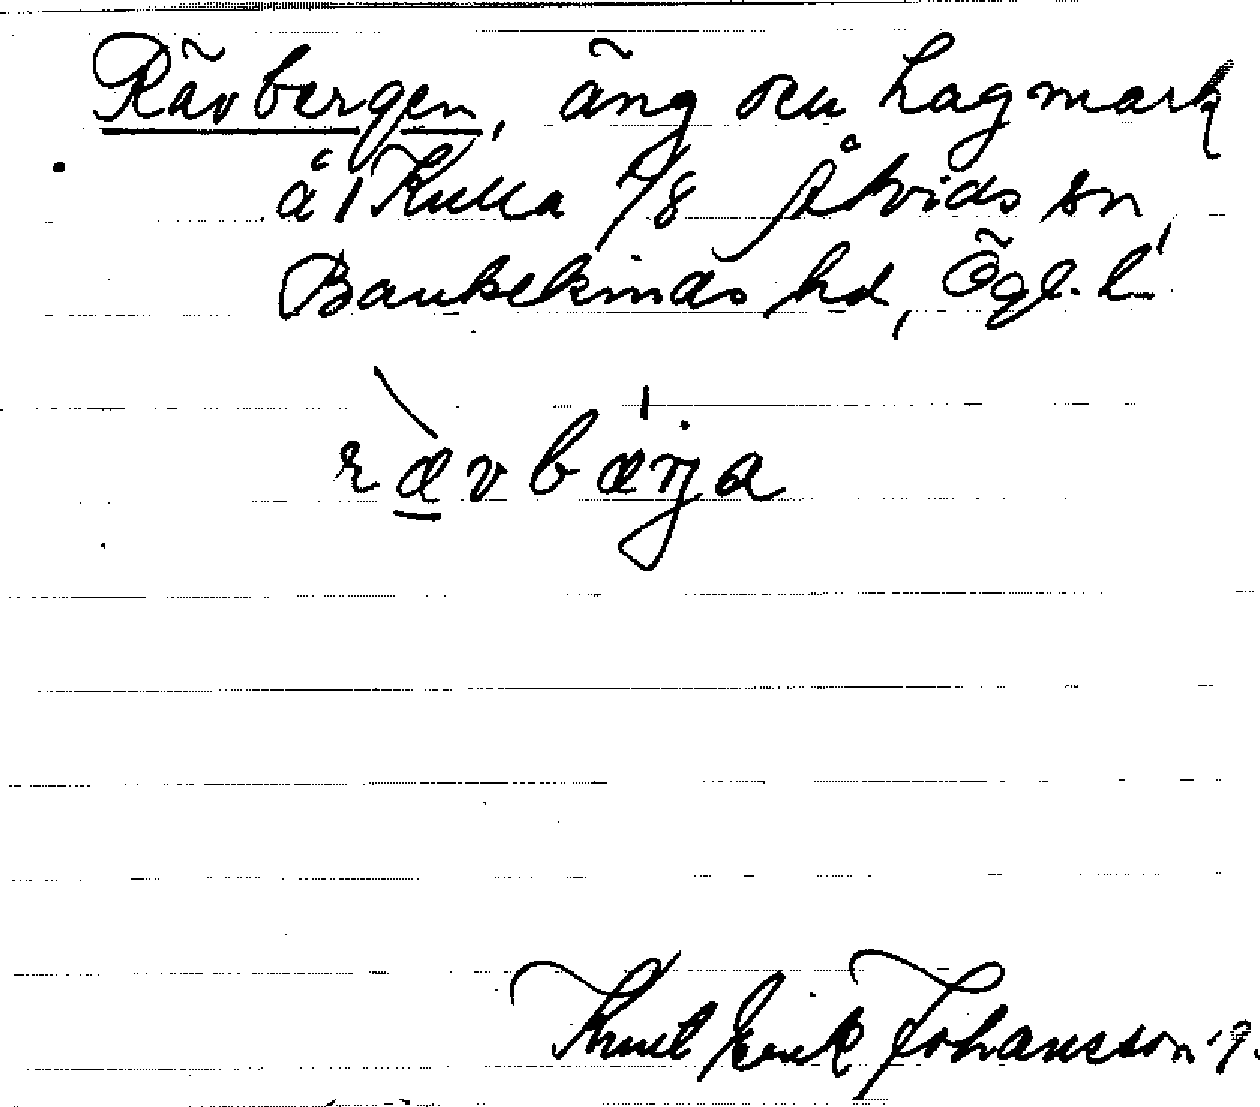 Rävbergen, äng och hagmark
å 1 Kulla 1/8 Åtvids sn,
Bankekinds hd, Ögl. l.
rævbærja
Knut Erik Johansson